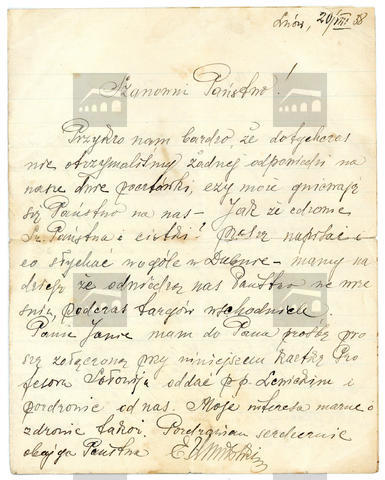 Lwów, 20/VIII 38
Szanowni Państwo!
Przykro nam bardzo, że dotychczas
nie otrzymaliśmy żadnej odpowiedzi na
nasze dwie pocztówki, czy może gniewają
się Państwo na nas - Jak że zdrowie
Sz. Państwa i cioci! Proszę napisać i
co słychać wogóle w Dubnie - mamy na
dzieję że odwiedzą nas Państwo we wrze
śniu, podczas targów wschodnich.
Panie Janie mam do Pana prośbę pro
szę załączoną przy niniejszem kartkę Pro
fesora oddać p.p. i
pozdrowić od nas. Moje interesa marne i
zdrowie takoż. Pozdrawiam serdecznie
obojga Państwa